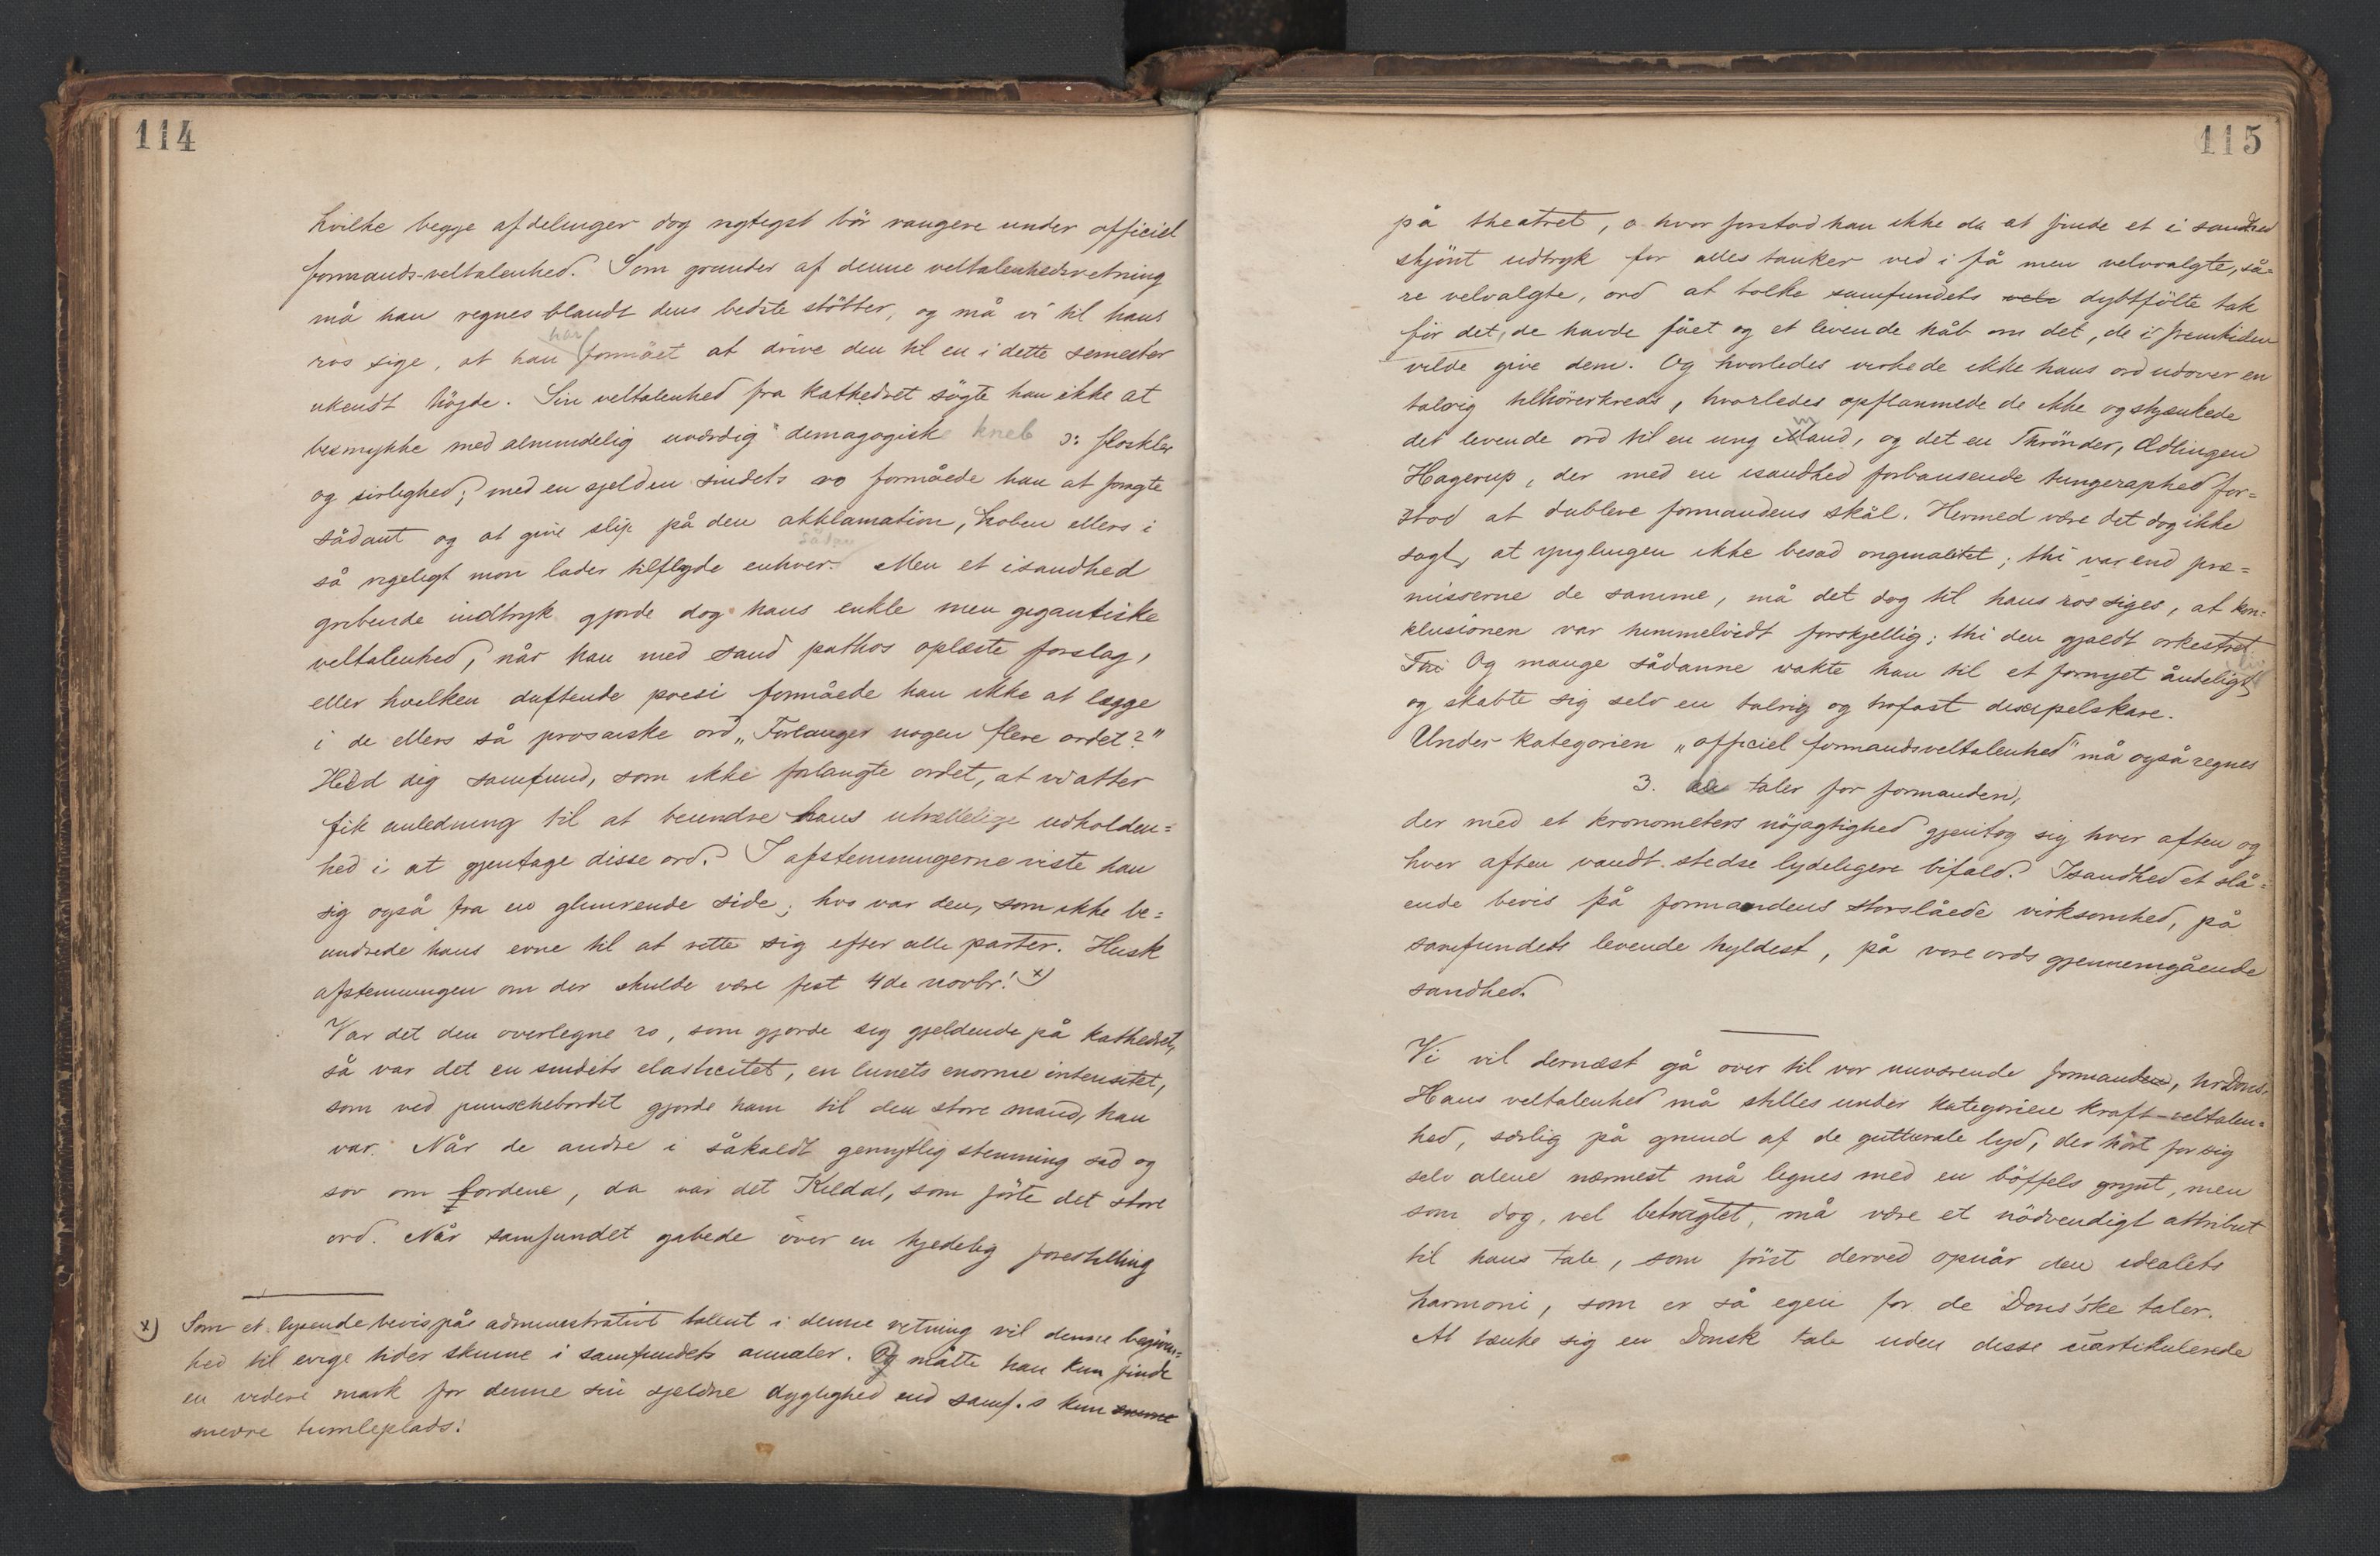 114
hvilke begge afdelinger dog rigtigst bör rangere under officiel
formands-veltalenhed. Som grunder af denne veltalenhedsretning
må han regnes blandt dens bedste stötter, og må vi til hans
ros sige, at han har formået at drive den til en i dette semester
ukendt höjde. Sin veltalenhed fra kathedret sögte han ikke at
besmykke med almindelig uværdig demagogiske kneb ɔ: floskler
og sirlighed; med en sjelden sindets ro formåede han at foragte
sådant og at give slip på den akklamation, hoben ellers i
så rigeligt mon lader tilflyde enhver sådan. Men et isandhed
gribende indtryk gjorde dog hans enkle men gigantiske
veltalenhed, når han med sand pathos oplæste forslag,
eller hvilken duftende poesi formåede han ikke at lægge
i de ellers så prosaiske ord „Forlanger nogen flere ordet?"
Held dig samfund, som ikke forlangte ordet, at vi atter
fik anledning til at beundre hans utrættelige udholden=
hed i at gjentage disse ord. I afstemningerne viste han
sig også fra en glimrende side; hvo var den, som ikke be=
undrede hans evne til at rette sig efter alle parter. Husk
afstemningen om der skulde være fest 4de novbr! x)
Var det den overlegne ro, som gjorde sig gjeldende på kathedret,
så var det en sindets elasticitet, en lunets enorme intensitet,
som ved punschebordet gjorde ham til den store mand, han
var. Når de andre i såkaldt gemytlig stemning sad og
sov om bordene, da var det Kildal, som förte det store
ord. Når samfundet gabede over en kjedelig forestilling
x) Som et lysende bevis på administrativt talent i denne retning vil denne begiven=
hed til evige tider skinne i samfundets annaler. Og måtte han kun finde
en videre mark for denne sin sjeldne dygtighed end samf.s kun
snevre tumleplads!
115
på theatret, o hvor forstod han ikke da at finde et i sandhed
skjönt udtryk for alles tanker ved i få men velvalgte, så=
re velvalgte, ord at tolke samfundets dybtfölte tak
for det, de havde fået og et levende håb om det, de i fremtiden
vilde give dem. Og hvorledes virkede ikke hans ord udover en
talrig tilhörerkreds, hvorledes opflammede de ikke og skjænkede
det levende ord til en ung mand, og det en Thrönder, Ædlingen
Hagerup, der med en isandhed forbausende tungeraphed for=
stod at dublere formandens skål. Hermed være det dog ikke
sagt, at ynglingen ikke besad originalitet; thi var end præ=
misserne de samme, må det dog til hans ros siges, at kon=
klusionen var himmelvidt forskjellig; thi den gjaldt orkestret.
Thi Og mange sådanne vakte han til et fornyet åndeligt liv
og skabte sig selv en talrig og trofast discipelskare.
Under kategorien „officiel formandsveltalenhed" må også regnes
3. taler for formanden,
der med et kronometers nöjagtighed gjentog sig hver aften og
hver aften vandt stedse lydeligere bifald. Isandhed et slå=
ende bevis på formandens storslåede virksomhed, på
samfundets levende hyldest, på vore ords gjennemgående
sandhed.
Vi vil dernæst gå over til vor nuværende formand, hr Dons.
Hans veltalenhed må stilles under kategorien kraft-veltalen=
hed, særlig på grund af de gutturale lyd, der hört for sig
selv alene nærmest må lignes med en böffels grynt, men
som dog, vel betragtet, må være et nödvendigt attribut
til hans tale, som först derved opnår den idealets
harmoni, som er så egen for de Dons'ske taler.
At tænke sig en Donsk tale uden disse uartikulerede